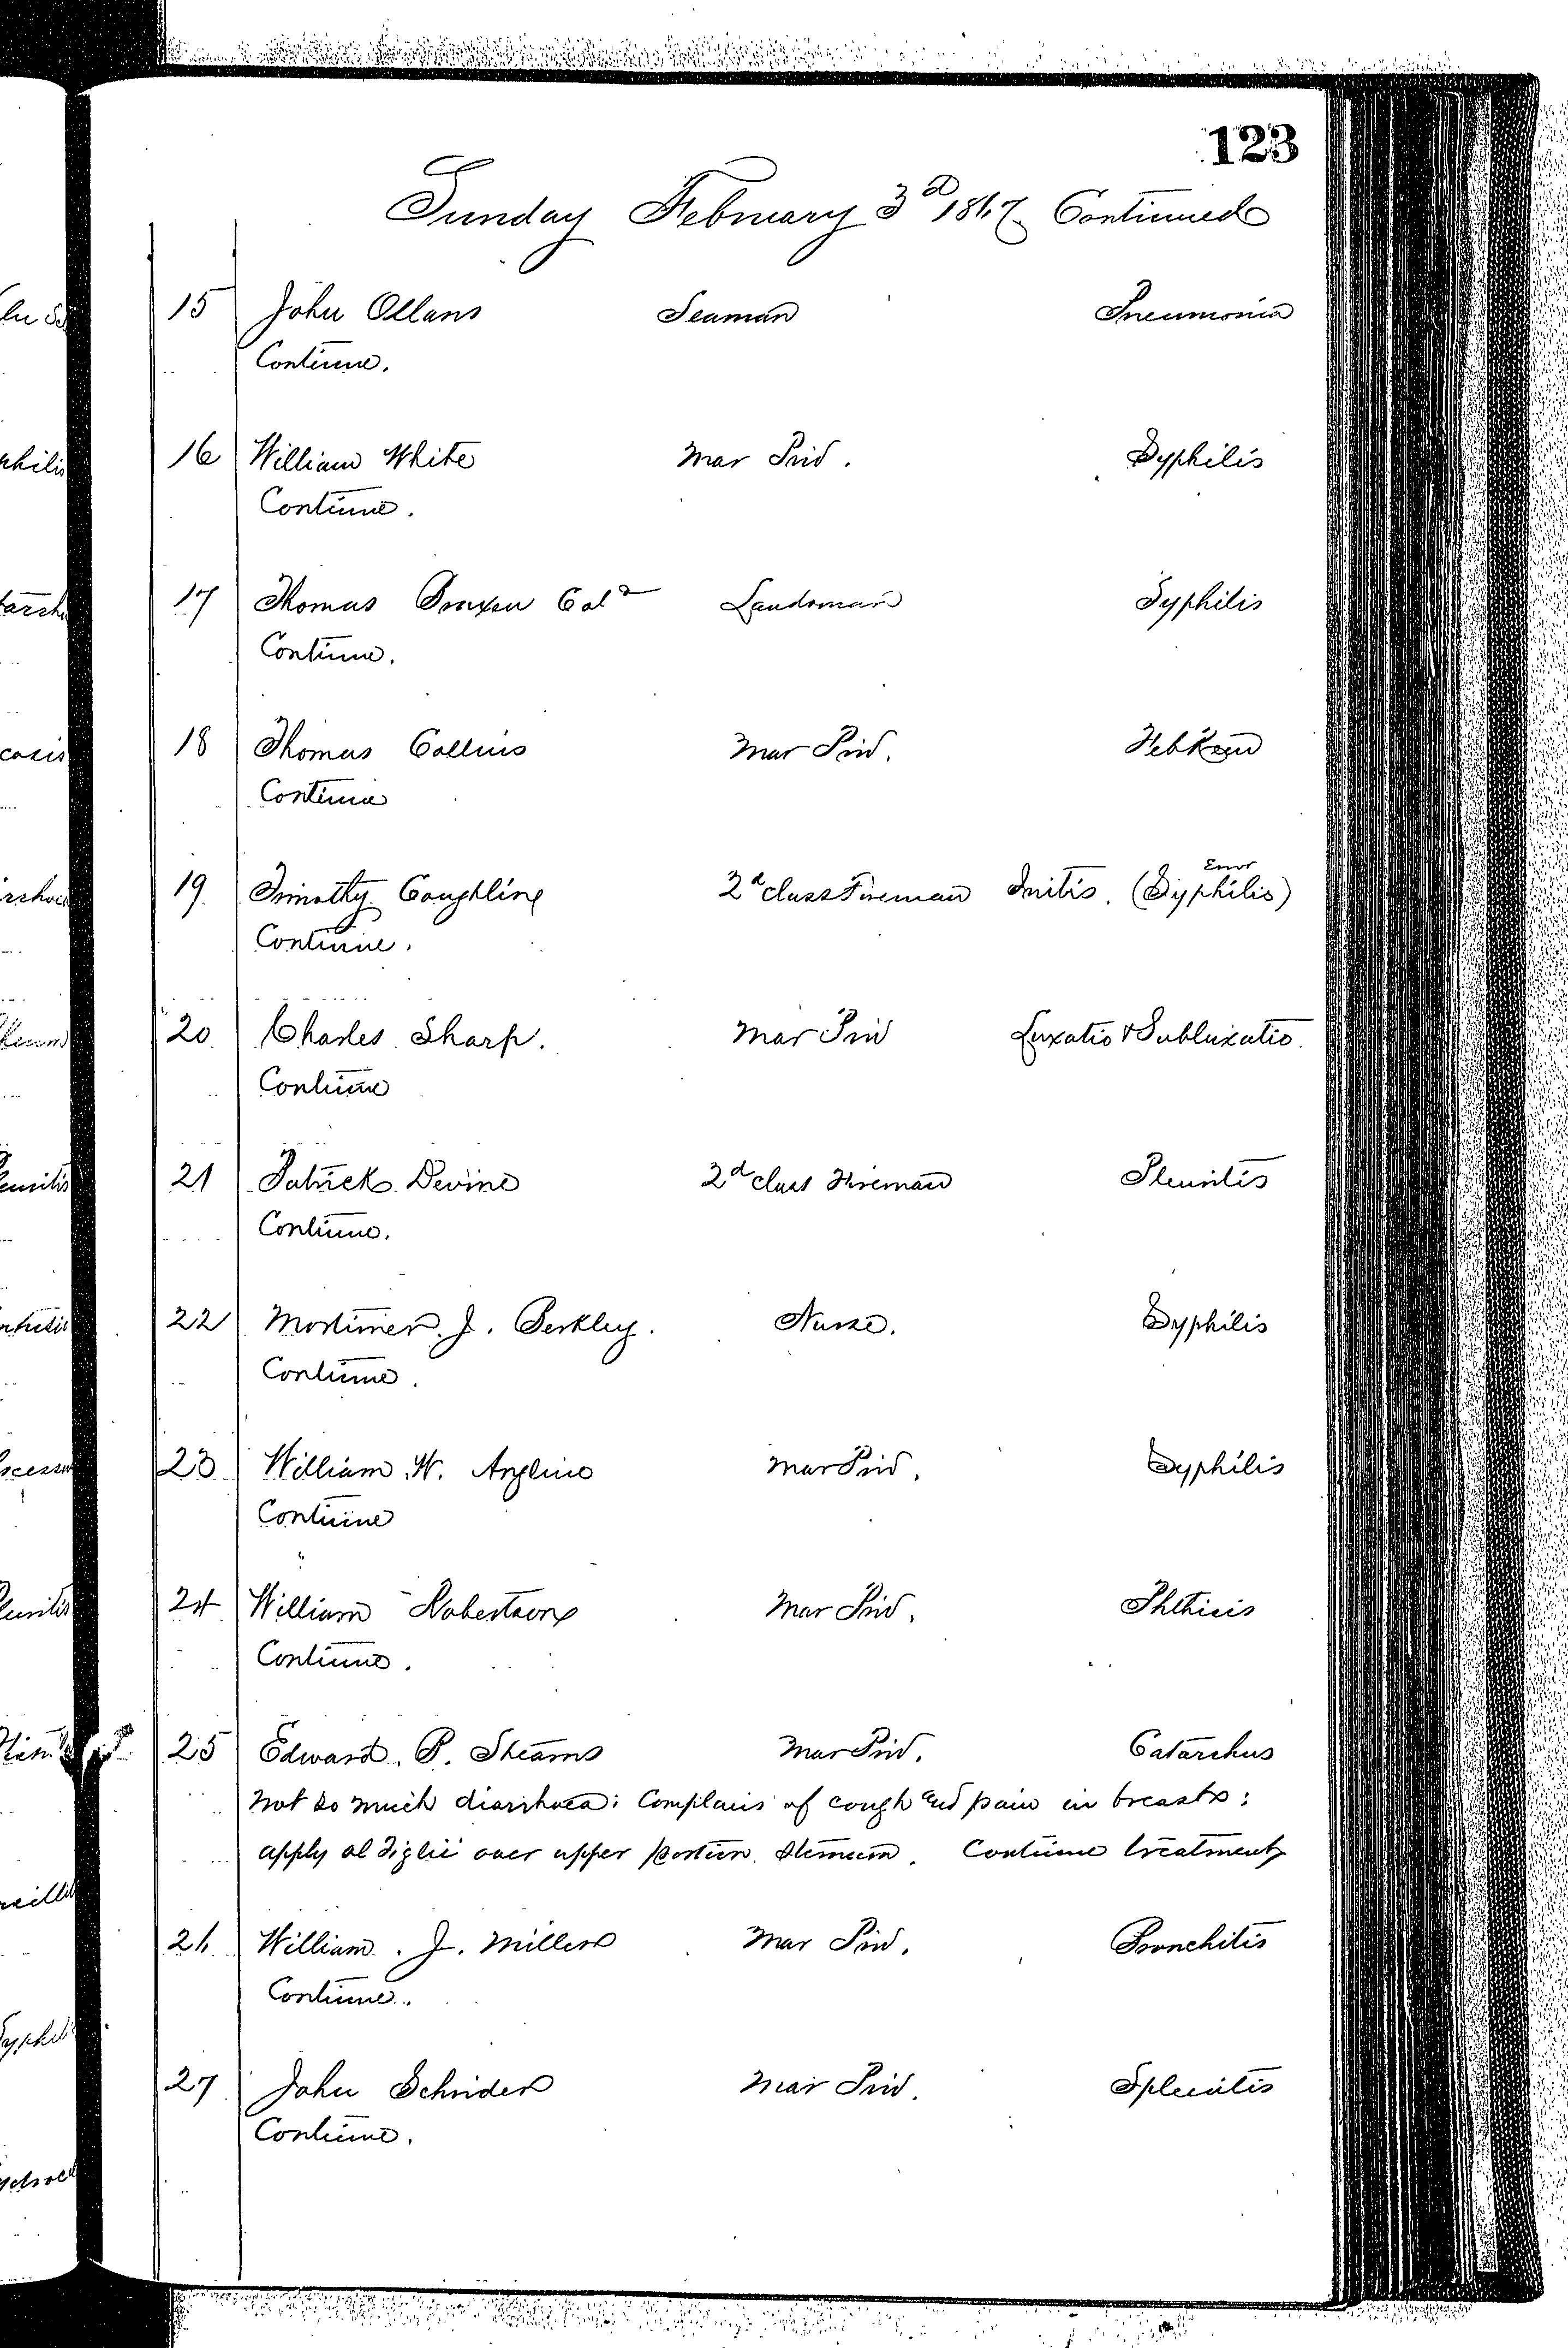 123
Sunday February 3d 1867 Continued
15 John Ollans Seaman Pneumonia
Continue.
16 William White Mar Priv. Syphilis
Continue.
17 Thomas Braxen Cold Landsman Syphilis
Continue.
18 Thomas Collins Mar Priv.
Continue
Error
19 Timothy Coughling 2d class Fireman Iritis. (Syphilis)
Continue.
20 Charles Sharp. Mar Priv Luxatio & Subluxatio.
Continue
21 Patrick Devine 2d class Fireman Pleuritis
Continue.
22 Mortimer. J. Berkley. Nurse. Syphilis
Continue.
23 William. W. Anglin Mar Priv. Syphilis
Continue
24 William Robertson Mar Priv. Phthisis
Continue.
25 Edward. P. Stearns Mar Priv. Catarrhus
not so much diarrhoea: Complains of cough and pain in breast:
apply ol Tiglii over upper portion Sternum. Continue treatment
26 William. J. Miller Mar Priv. Bronchitis
Continue.
27 John Schrider Mar Priv. Splenitis
Continue.